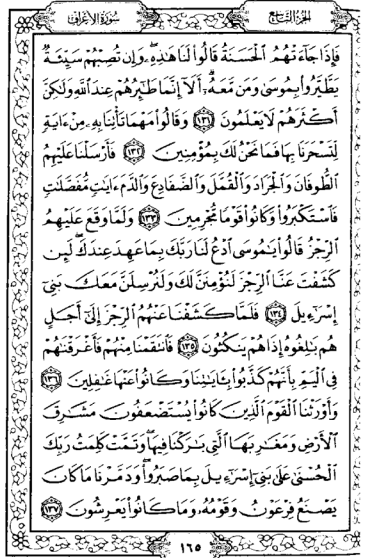 الجزء التاسع
سورة الأعراف
فَإِذَا جَآءَتْهُمُ ٱلْحَسَنَةُ قَالُوا۟ لَنَا هَـٰذِهِۦ ۖ وَإِن تُصِبْهُمْ سَيِّئَةٌ
يَطَّيَّرُوا۟ بِمُوسَىٰ وَمَن مَّعَهُۥٓ ۗ أَلَآ إِنَّمَا طَـٰٓئِرُهُمْ عِندَ ٱللَّهِ وَلَـٰكِنَّ
أَكْثَرَهُمْ لَا يَعْلَمُونَ ﴿١٣١﴾ وَقَالُوا۟ مَهْمَا تَأْتِنَا بِهِۦ مِنْ ءَايَةٍ
لِّتَسْحَرَنَا بِهَا فَمَا نَحْنُ لَكَ بِمُؤْمِنِينَ ﴿١٣٢﴾ فَأَرْسَلْنَا عَلَيْهِمُ
ٱلطُّوفَانَ وَٱلْجَرَادَ وَٱلْقُمَّلَ وَٱلضَّفَادِعَ وَٱلدَّمَ ءَايَـٰتٍ مُّفَصَّلَـٰتٍ
فَٱسْتَكْبَرُوا۟ وَكَانُوا۟ قَوْمًا مُّجْرِمِينَ ﴿١٣٣﴾ وَلَمَّا وَقَعَ عَلَيْهِمُ
ٱلرِّجْزُ قَالُوا۟ يَـٰمُوسَى ٱدْعُ لَنَا رَبَّكَ بِمَا عَهِدَ عِندَكَ ۖ لَئِن
كَشَفْتَ عَنَّا ٱلرِّجْزَ لَنُؤْمِنَنَّ لَكَ وَلَنُرْسِلَنَّ مَعَكَ بَنِىٓ
إِسْرَٰٓءِيلَ ﴿١٣٤﴾ فَلَمَّا كَشَفْنَا عَنْهُمُ ٱلرِّجْزَ إِلَىٰٓ أَجَلٍ
هُم بَـٰلِغُوهُ إِذَا هُمْ يَنكُثُونَ ﴿١٣٥﴾ فَٱنتَقَمْنَا مِنْهُمْ فَأَغْرَقْنَـٰهُمْ
فِى ٱلْيَمِّ بِأَنَّهُمْ كَذَّبُوا۟ بِـَٔايَـٰتِنَا وَكَانُوا۟ عَنْهَا غَـٰفِلِينَ ﴿١٣٦﴾
وَأَوْرَثْنَا ٱلْقَوْمَ ٱلَّذِينَ كَانُوا۟ يُسْتَضْعَفُونَ مَشَـٰرِقَ
ٱلْأَرْضِ وَمَغَـٰرِبَهَا ٱلَّتِى بَـٰرَكْنَا فِيهَا ۖ وَتَمَّتْ كَلِمَتُ رَبِّكَ
ٱلْحُسْنَىٰ عَلَىٰ بَنِىٓ إِسْرَٰٓءِيلَ بِمَا صَبَرُوا۟ ۖ وَدَمَّرْنَا مَا كَانَ
يَصْنَعُ فِرْعَوْنُ وَقَوْمُهُۥ وَمَا كَانُوا۟ يَعْرِشُونَ ﴿١٣٧﴾
١٦٥